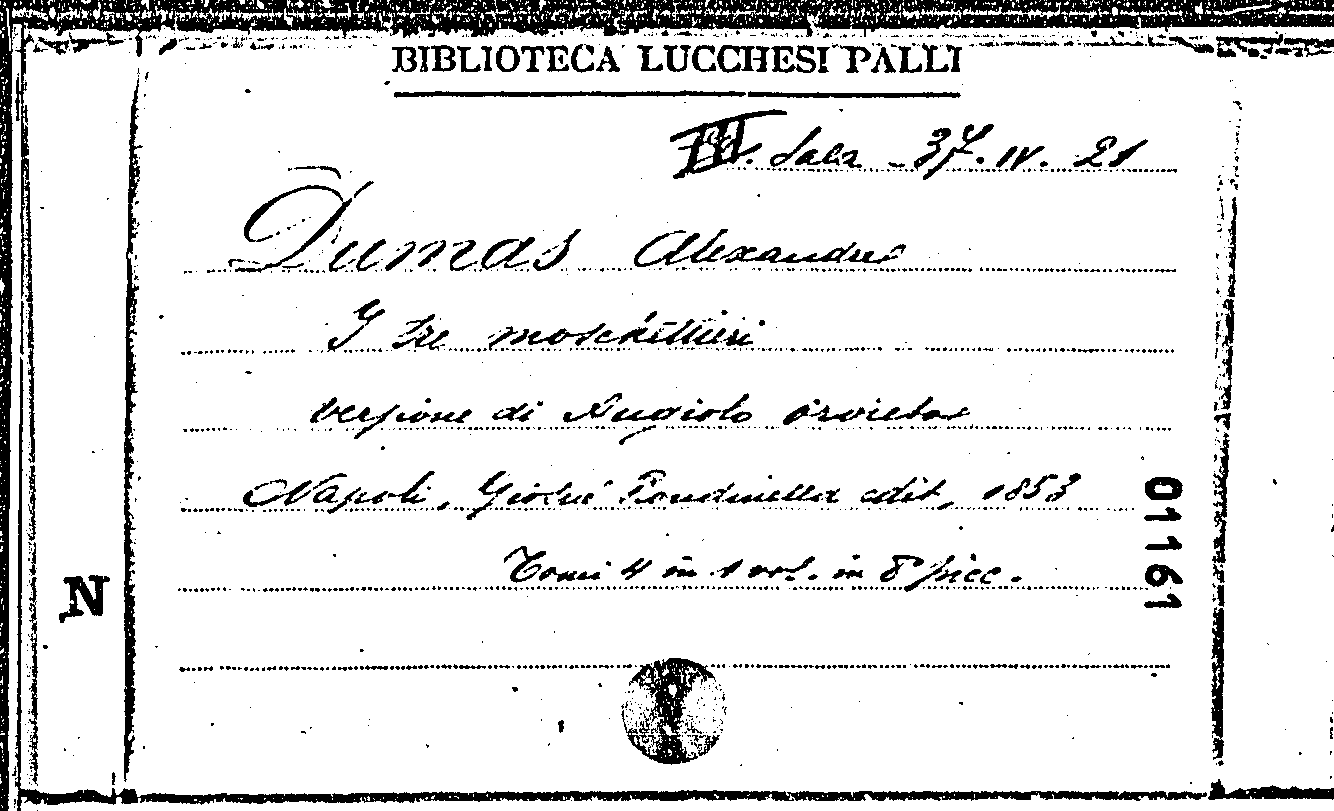 BIBLIOTECA LUCCHESI PALLI
III. Sala - 37. IV. 21
Dumas Alexandre
I tre moschettieri
versione di Angiolo Orvieto
Napoli, Giosuè Rondinella edit, 1853
Tomi 4 in 1 vol. in 8° picc.
01161
N